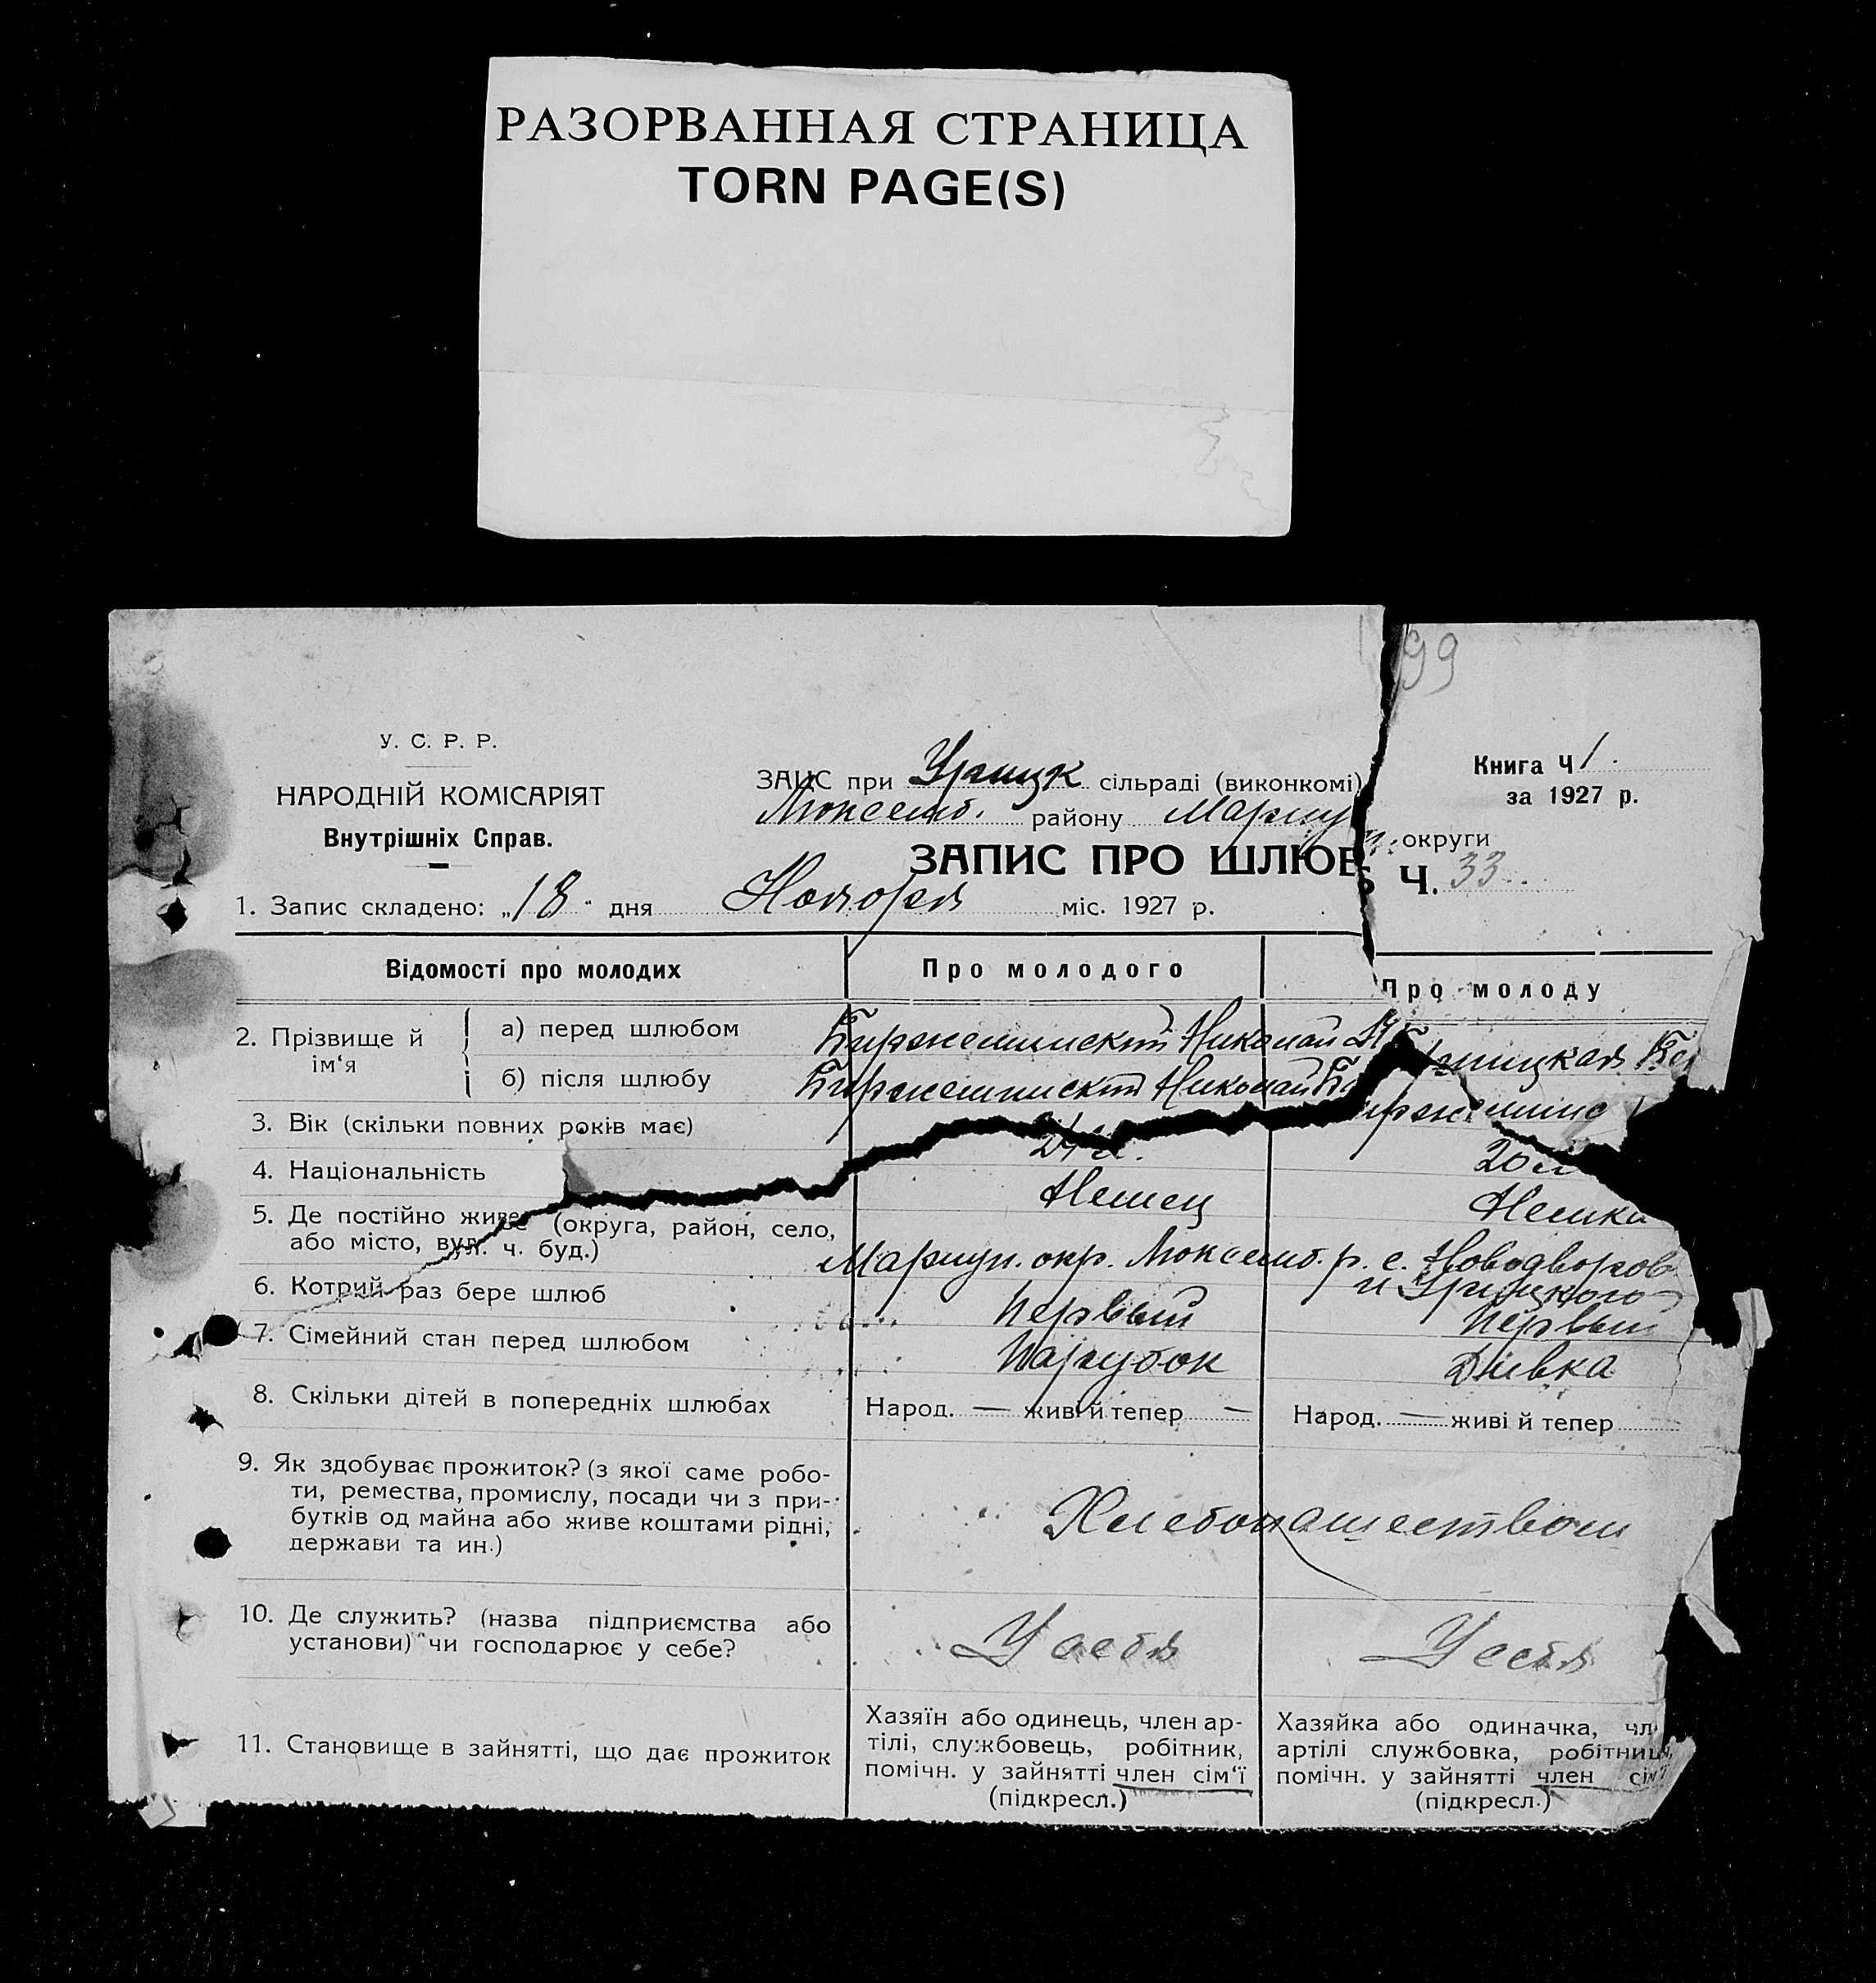 РАЗОРВАННАЯ СТРАНИЦА
TORN PAGE(S)
99
У. С. Р. Р.
НАРОДНІЙ КОМІСАРІЯТ
Внутрішніх Справ.
ЗАГС при Урицк сільраді (виконкомі)
Люксемб. району Мариуп. округи
Книга Ч 1.
за 1927 р.
ЗАПИС ПРО ШЛЮБ Ч. 33
1. Запис складено: „18" дня Ноября міс. 1927 р.
Відомості про молодих
Про молодого
Про молоду
2. Прізвище й ім‘я
а) перед шлюбом
Николай
б) після шлюбу
Николай
3. Вік (скільки повних років має)
24 л.
20 л
4. Національність
Немец
Немка
5. Де постійно живе (округа, район, село,
або місто, вул. ч. буд.)
Мариуп. окр. Люксемб. р. с. Новодворов
и Урицкого
6. Котрий раз бере шлюб
Первый
Первый
7. Сімейний стан перед шлюбом
Парубок
Дивка
8. Скільки дітей в попередніх шлюбах
Народ. — живі й тепер —
Народ. — живі й тепер
9. Як здобуває прожиток? (з якої саме робо-
ти, ремества, промислу, посади чи з при-
бутків од майна або живе коштами рідні,
держави та ин.)
Хлебопашеством
10. Де служить? (назва підприємства або
установи) чи господарює у себе?
У себя
У себя
11. Становище в зайнятті, що дає прожиток
Хазяїн або одинець, член ар-
тілі, службовець, робітник,
помічн. у зайнятті член сім‘ї
(підкресл.)
Хазяйка або одиначка, чл
артілі службовка, робітниця,
помічн. у зайнятті член сім‘ї
(підкресл.)